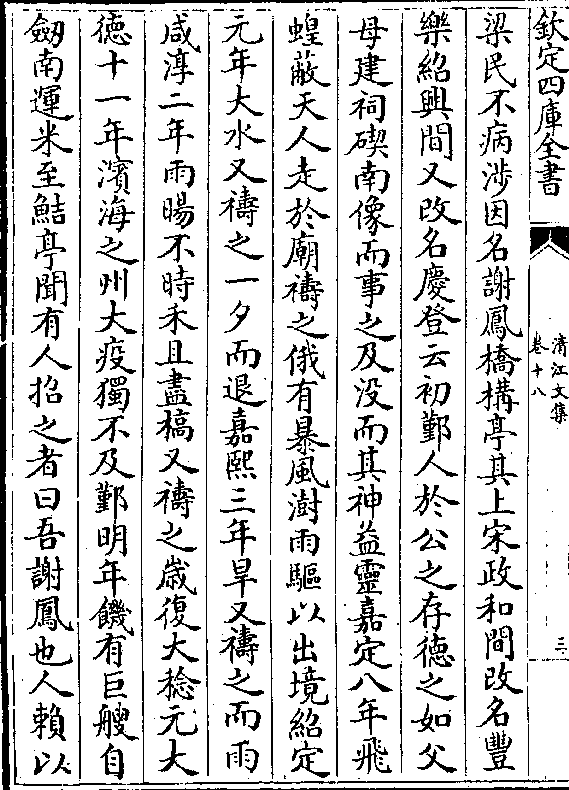 欽定四庫全書
清江文集
卷十八
三
梁民不病涉因名謝鳳橋構亭其上宋政和間改名豐
樂紹興間又改名慶登云初鄞人於公之存德之如父
母建祠碶南像而事之及没而其神益靈嘉定八年飛
蝗蔽天人走於廟禱之俄有暴風澍雨驅以出境紹定
元年大水又禱之一夕而退嘉熙三年旱又禱之而雨
咸淳二年雨暘不時禾且盡槁又禱之歲復大稔元大
徳十一年濱海之州大疫獨不及鄞明年饑有巨艘自
劒南運米至鮚亭聞有人招之者曰吾謝鳳也人賴以